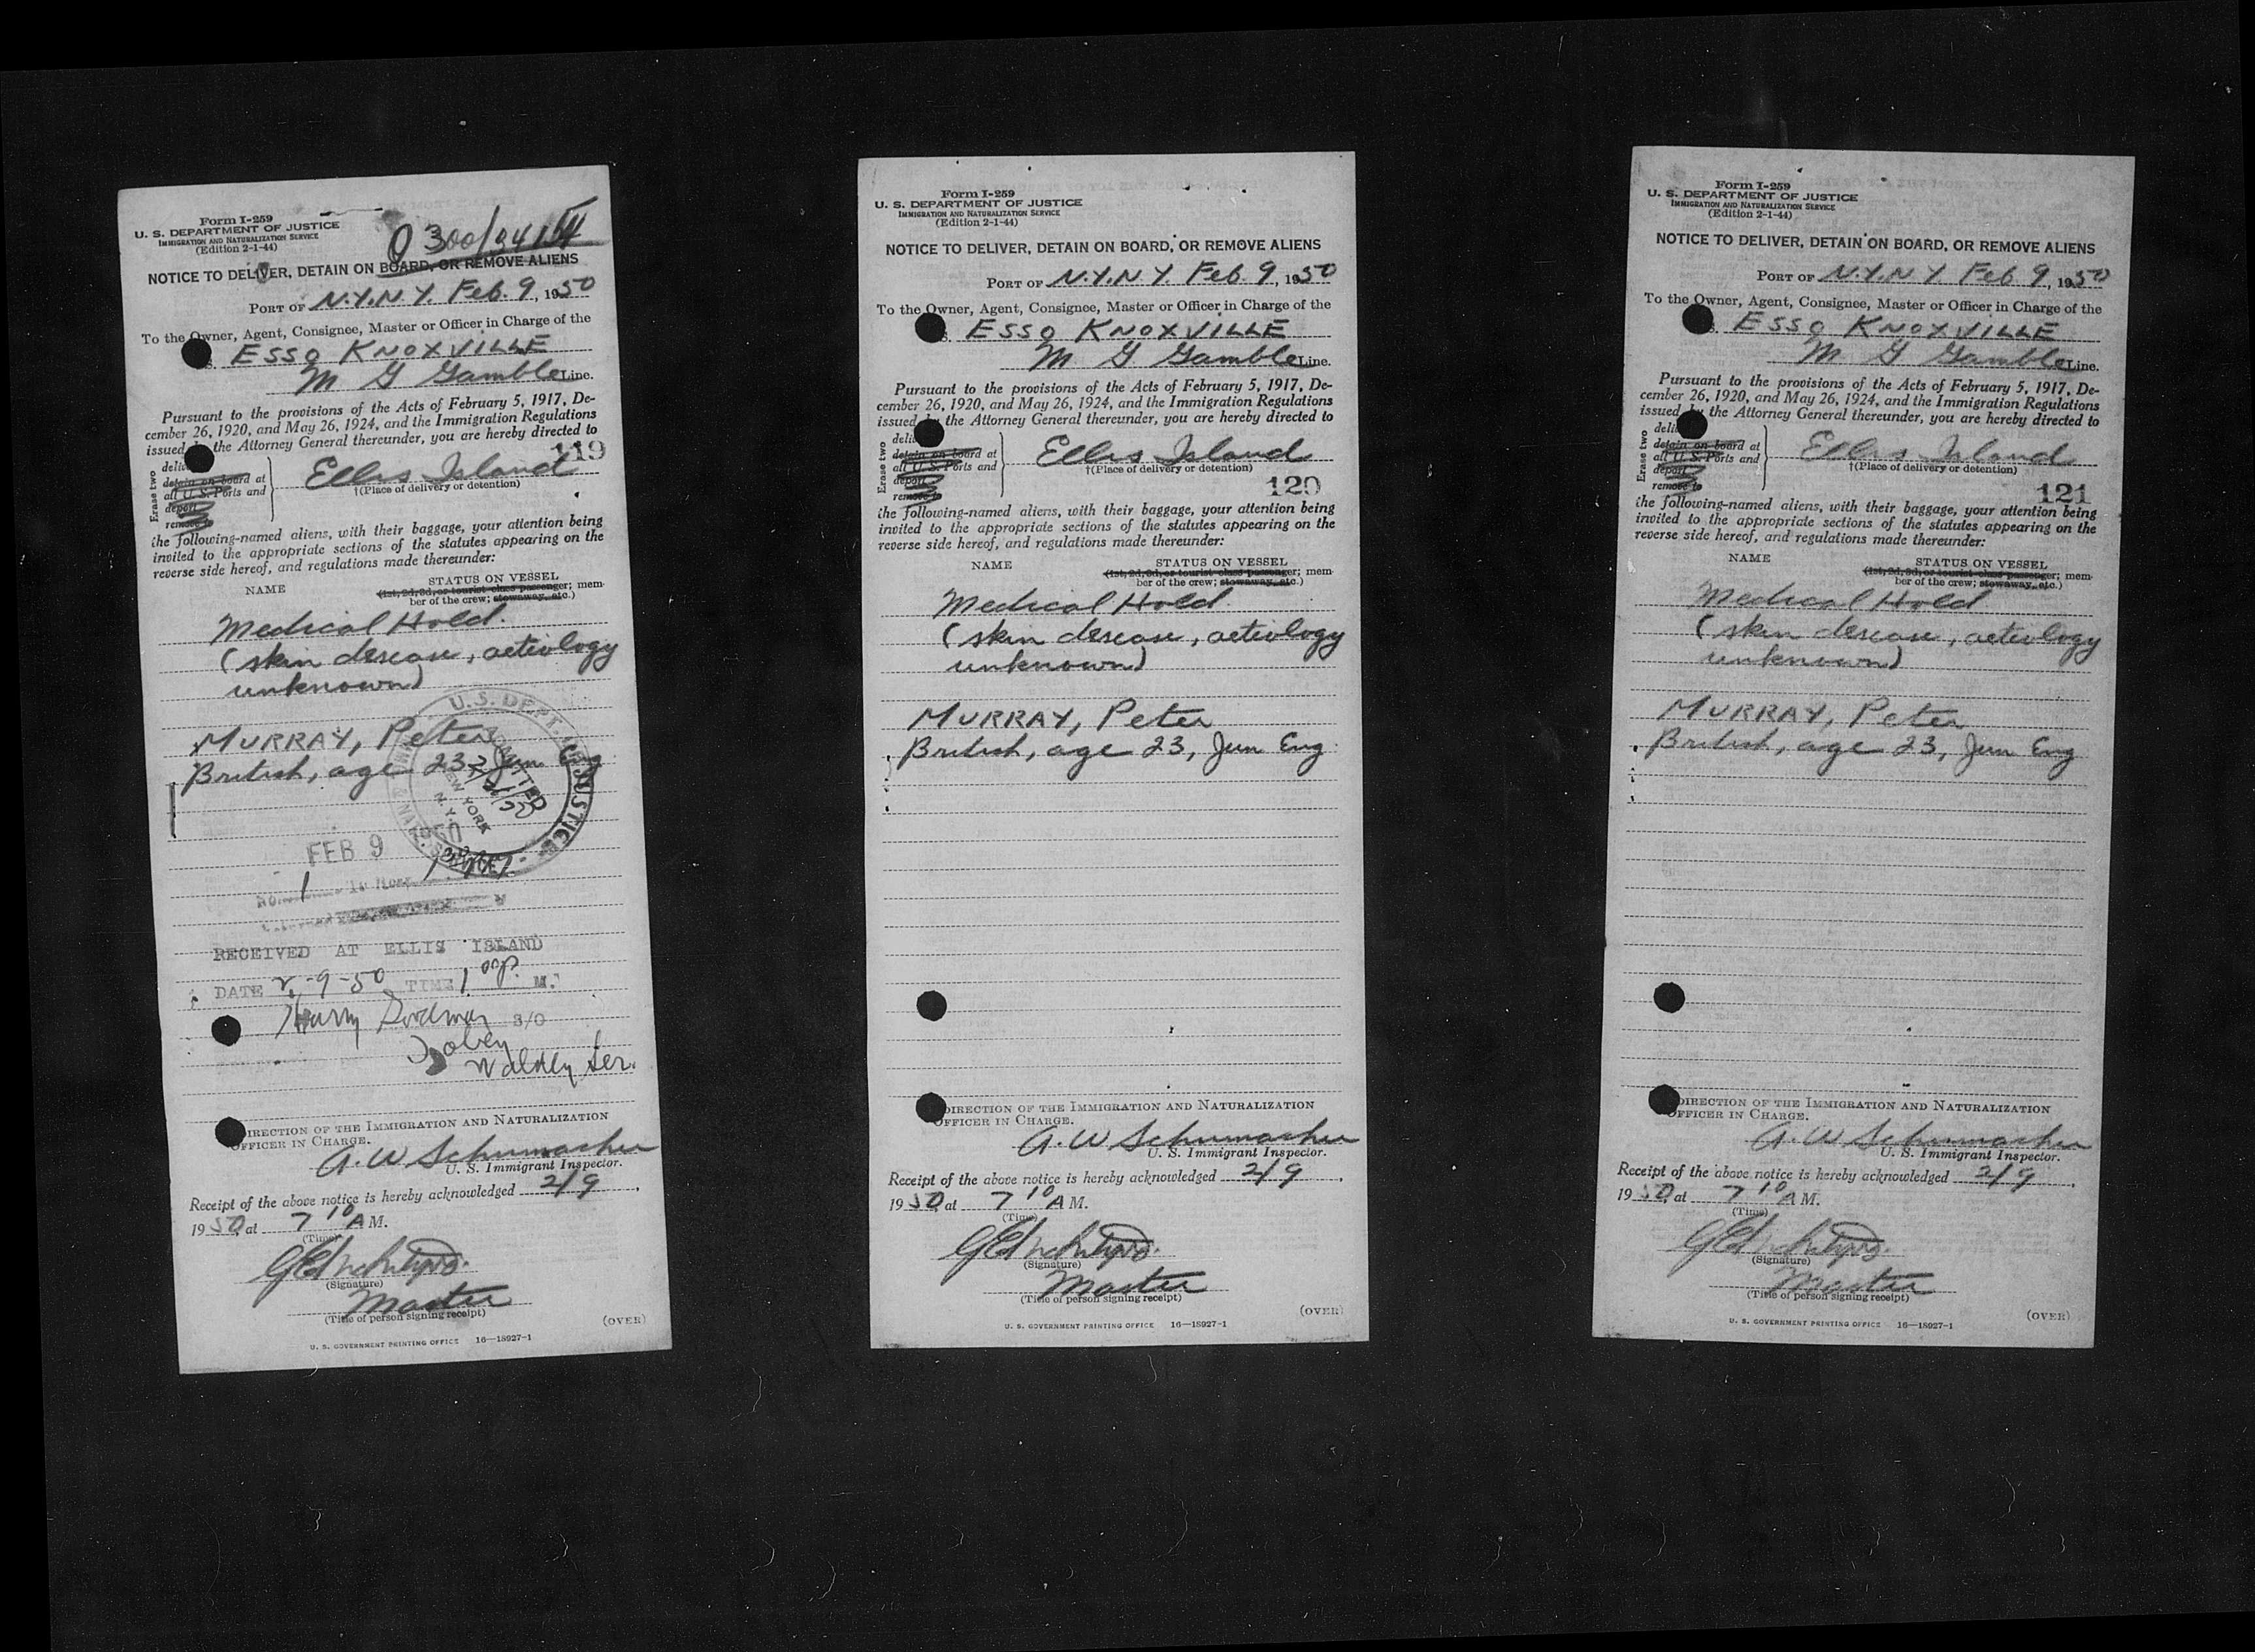 Form I-259
U. S. DEPARTMENT OF JUSTICE
IMMIGRATION AND NATURALIZATION SERVICE
(Edition 2-1-44)
0300/34
NOTICE TO DELIVER, DETAIN ON BOARD, OR REMOVE ALIENS
PORT OF N.Y.N.Y. Feb. 9, 1950
To the Owner, Agent, Consignee, Master or Officer in Charge of the
ESSO KNOXVILLE
M G Gamble Line.
Pursuant to the provisions of the Acts of February 5, 1917, De-
cember 26, 1920, and May 26, 1924, and the Immigration Regulations
issued by the Attorney General thereunder, you are hereby directed to
119
Erase two
deli
detain on board at
all U. S. Ports and
deport
remove to
Ellis Island
†(Place of delivery or detention)
the following-named aliens, with their baggage, your attention being
invited to the appropriate sections of the statutes appearing on the
reverse side hereof, and regulations made thereunder:
NAME
STATUS ON VESSEL
(1st, 2d, 3d, or tourist class passenger; mem-
ber of the crew; stowaway, etc.)
Medical Hold.
(skin desease, aeteology
unknown)
MURRAY, Peter
British, age 23, Jun Eng
U.S. DEPT. OF JUSTICE
NEW YORK
N.Y.
FEB 9 1950
RECEIVED AT ELLIS ISLAND
DATE 2-9-50 TIME 1 00 P. M.
Harry Goodman S/O
DIRECTION OF THE IMMIGRATION AND NATURALIZATION
OFFICER IN CHARGE.
A. W Schumacher
U. S. Immigrant Inspector.
Receipt of the above notice is hereby acknowledged 2/9,
1950, at 7 10 A M.
(Time)
(Signature)
Master
(Title of person signing receipt)
(OVER)
U. S. GOVERNMENT PRINTING OFFICE 16—18927-1
Form I-259
U. S. DEPARTMENT OF JUSTICE
IMMIGRATION AND NATURALIZATION SERVICE
(Edition 2-1-44)
NOTICE TO DELIVER, DETAIN ON BOARD, OR REMOVE ALIENS
PORT OF N.Y.N.Y. Feb. 9, 1950
To the Owner, Agent, Consignee, Master or Officer in Charge of the
ESSO KNOXVILLE
M G Gamble Line.
Pursuant to the provisions of the Acts of February 5, 1917, De-
cember 26, 1920, and May 26, 1924, and the Immigration Regulations
issued by the Attorney General thereunder, you are hereby directed to
Erase two
deli
detain on board at
all U. S. Ports and
deport
remove to
Ellis Island
†(Place of delivery or detention)
120
the following-named aliens, with their baggage, your attention being
invited to the appropriate sections of the statutes appearing on the
reverse side hereof, and regulations made thereunder:
NAME
STATUS ON VESSEL
(1st, 2d, 3d, or tourist class passenger; mem-
ber of the crew; stowaway, etc.)
Medical Hold.
(skin desease, aeteology
unknown)
MURRAY, Peter
British, age 23, Jun Eng.
DIRECTION OF THE IMMIGRATION AND NATURALIZATION
OFFICER IN CHARGE.
A. W Schumacher
U. S. Immigrant Inspector.
Receipt of the above notice is hereby acknowledged 2/9,
1950, at 7 10 A M.
(Time)
(Signature)
Master
(Title of person signing receipt)
(OVER)
U. S. GOVERNMENT PRINTING OFFICE 16—18927-1
Form I-259
U. S. DEPARTMENT OF JUSTICE
IMMIGRATION AND NATURALIZATION SERVICE
(Edition 2-1-44)
NOTICE TO DELIVER, DETAIN ON BOARD, OR REMOVE ALIENS
PORT OF N.Y.N.Y. Feb 9, 1950
To the Owner, Agent, Consignee, Master or Officer in Charge of the
ESSO KNOXVILLE
M G Gamble Line.
Pursuant to the provisions of the Acts of February 5, 1917, De-
cember 26, 1920, and May 26, 1924, and the Immigration Regulations
issued by the Attorney General thereunder, you are hereby directed to
Erase two
deli
detain on board at
all U. S. Ports and
deport
remove to
Ellis Island
†(Place of delivery or detention)
121
the following-named aliens, with their baggage, your attention being
invited to the appropriate sections of the statutes appearing on the
reverse side hereof, and regulations made thereunder:
NAME
STATUS ON VESSEL
(1st, 2d, 3d, or tourist class passenger; mem-
ber of the crew; stowaway, etc.)
Medical Hold
(skin desease, aeteology
unknown)
MURRAY, Peter
British, age 23, Jun Eng
DIRECTION OF THE IMMIGRATION AND NATURALIZATION
OFFICER IN CHARGE.
A. W Schumacher
U. S. Immigrant Inspector.
Receipt of the above notice is hereby acknowledged 2/9,
1950, at 7 10 A M.
(Time)
(Signature)
Master
(Title of person signing receipt)
(OVER)
U. S. GOVERNMENT PRINTING OFFICE 16—18927-1